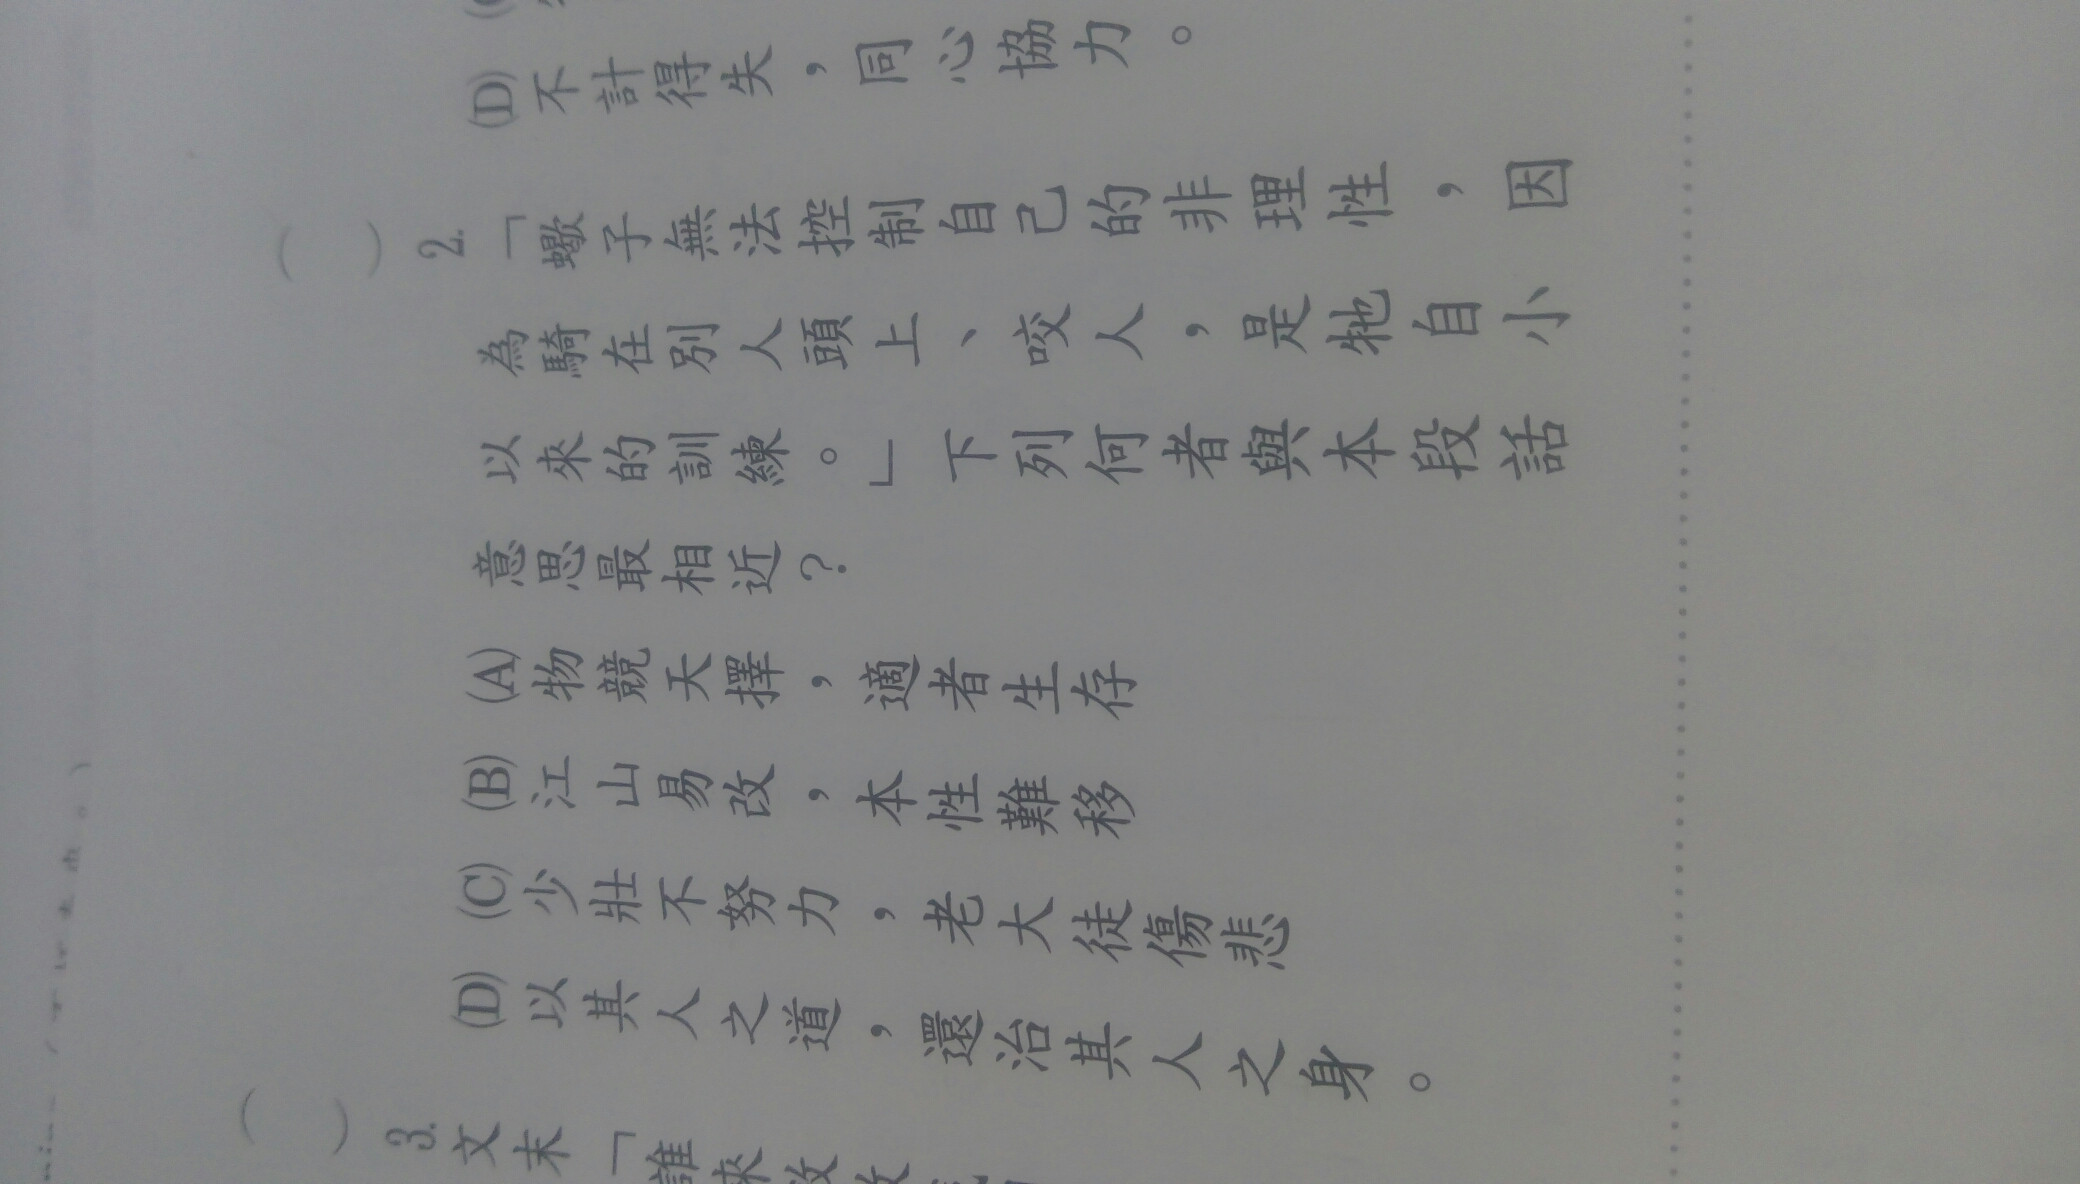 (D)不計得失，同心協力。
( ) 2.「蠍子無法控制自己的非理性，因
為騎在別人頭上、咬人，是牠自小
以來的訓練。」下列何者與本段話
意思最相近？
(A)物競天擇，適者生存
(B)江山易改，本性難移
(C)少壯不努力，老大徒傷悲
(D)以其人之道，還治其人之身。
( ) 3.文末「誰來救救